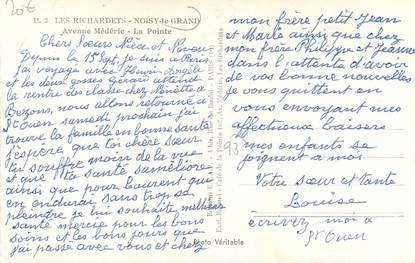 20€
R. 2 LES RICHARDETS - NOISY-le-GRAND
Avenue Médéric - La Pointe
Chers Sœurs Nièce et Neveu
Depuis le 15 Sept. je suis a Paris
J'ai voyagé avec Henri Angèle
et les deux gosses Gérard attend
la rentrée des classe chez Ninette a
Bezons, nous allons retourné a
St Ouen samedi prochain j'ai
trouvé la famille en bonne santé
j'espère que toi chère sœur
tu souffre moins de la vue
et que ta santé saméliore
ainsi que pour Laurent qui
en endurait sans trop se
pleindre je lui souhaite meilleur
santé merci pour les bons
soins et les bons jours que
j'ai passé avec vous et chez
mon frère petit Jean
et Marie ainsi que chez
mon frère Philippe et Jeanne
dans l'attente d'avoir
de vos bonne nouvelles
je vous quittent en
vous envoyant mes
affectueux baisers
93 mes enfants se
joignent a moi
Votre sœur et tante
Louise
écrivez moi a
St Ouen
Photo Véritable